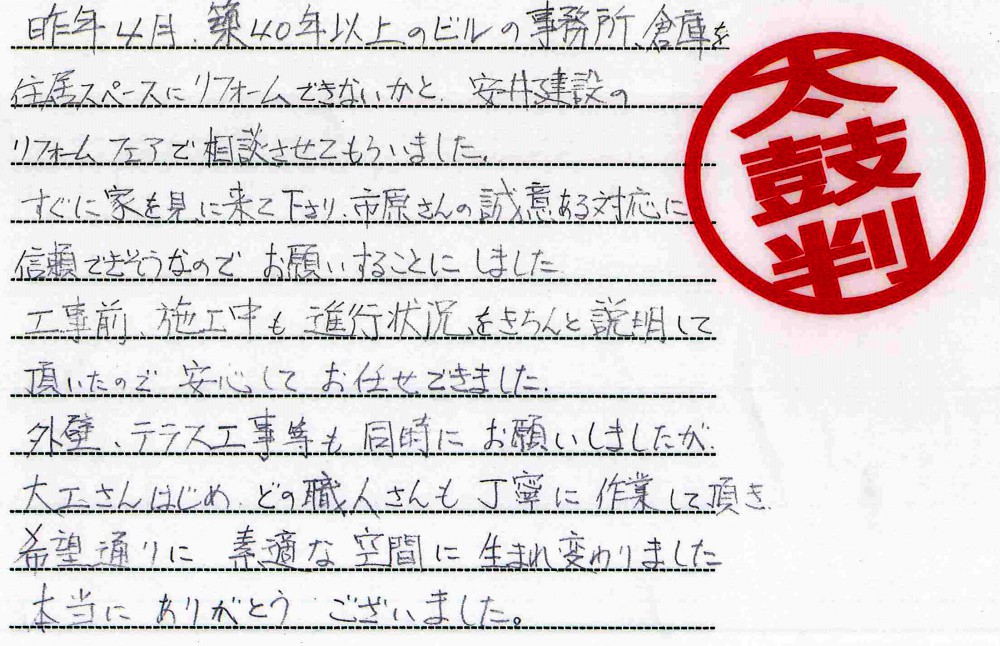 昨年4月、築40年以上のビルの事務所、倉庫を
住居スペースにリフォームできないかと、安井建設の
リフォームフェアで相談させてもらいました。
すぐに家を見に来て下さり、市原さんの誠意ある対応に
信頼できそうなのでお願いすることにしました
工事前、施工中も進行状況をきちんと説明して
頂いたので安心してお任せできました。
外壁、テラス工事等も同時にお願いしましたが、
大工さんはじめ、どの職人さんも丁寧に作業して頂き、
希望通りに素適な空間に生まれ変わりました
本当にありがとうございました。
太鼓判